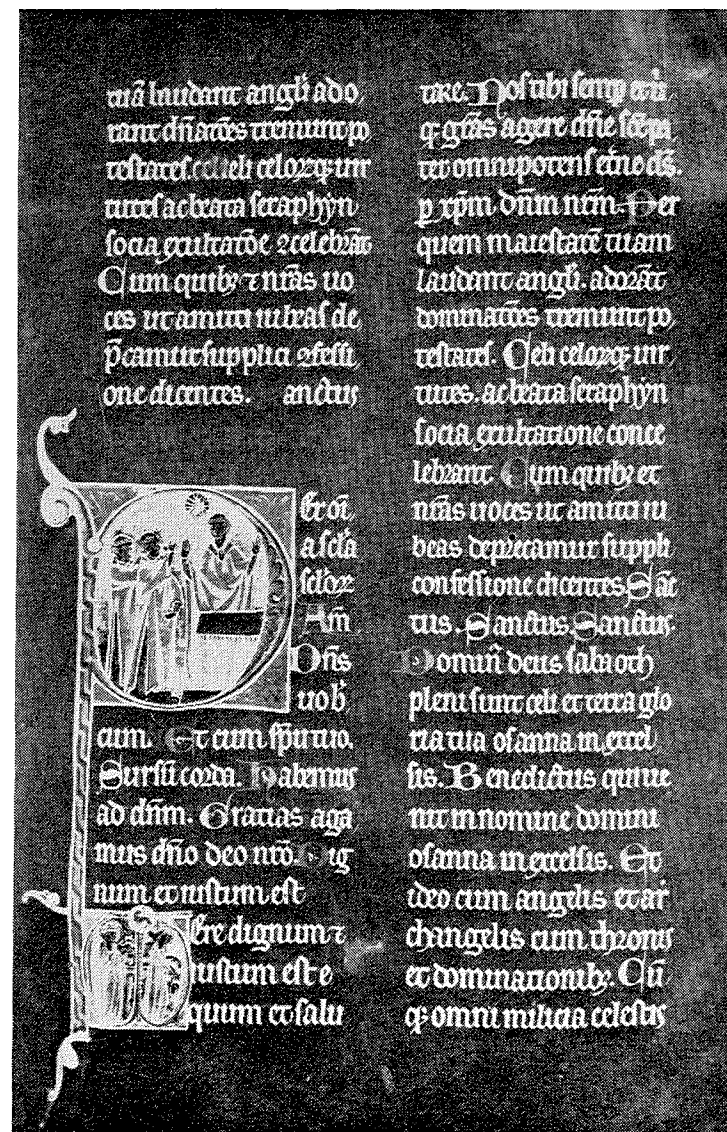 tuā laudant angĺi ado
rant dn̄atōes tremunt po
testates. celi celorꝫ uir
tutes ac beata seraphyn
socia exultatōe ꝯcelebrāt
Cum quibꝫ ⁊ nr̄as uo
ces ut amitti iubeas de
p̄camur supplici ꝯfessi
one dicentes. anctus
Er oī
a scĺa
scĺoꝝ
Am̄
Dn̄s
uob̄
cum. Et cum sp̄u tuo.
Sursū corda. Habemus
ad dn̄m. Gratias aga
mus dn̄o deo nr̄o. Dig
num et iustum est
Ere dignum ⁊
iustum est e
quum et salu
tare. Nos tibi semp̲ et ū
qꝫ gr̄as agere dn̄e sc̄e pa
ter omnipotens et̄ne ds̄.
p̲ xp̄m dn̄m nr̄m. Per
quem maiestatē tuam
laudant angĺi. adorāt
dominatōes tremunt po
testates. Celi celorꝫ uir
tutes. ac beata seraphyn
socia exultatione conce
lebrant. Cum quibꝫ et
nr̄as uoces ut amitti iu
beas deprecamur suppli
confessione dicentes. Sāc
tus. Sanctus. Sanctus.
Domin̄ deus sabaoth
pleni sunt celi et terra glo
ria tua osanna in excel
sis. Benedictus qui ue
nit in nomine domini
osanna in excelsis. Et
ideo cum angelis et ar̄
changelis cum thronis
et dominationibꝫ. Cū
qꝫ omni milicia celestis